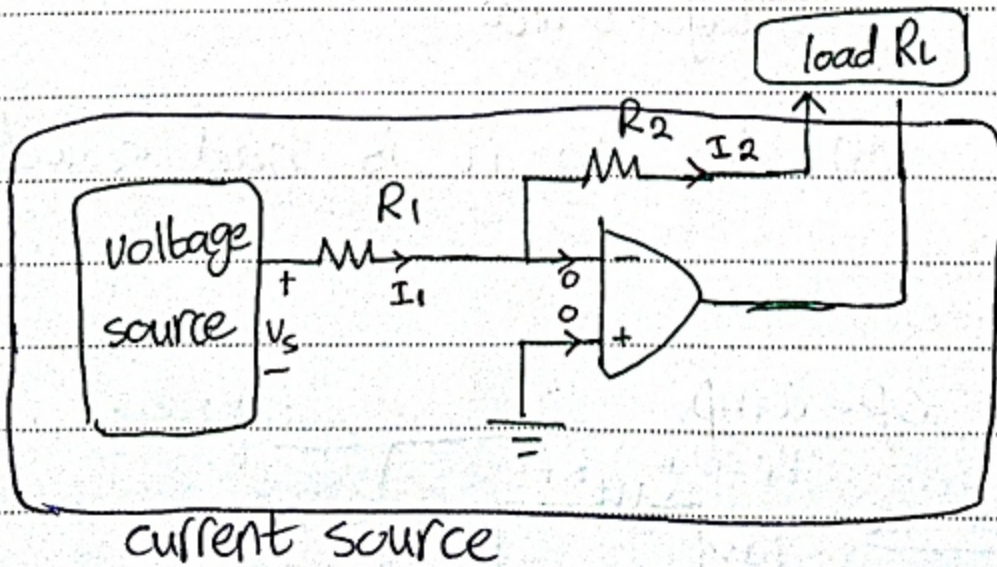 load RL
R2
I2
R1
voltage
source
+
Vs
-
I1
0
0
-
+
current source